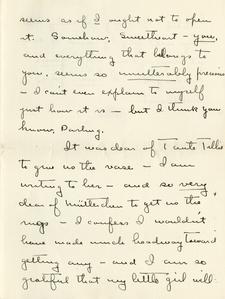 seems as if I ought not to open
it. Somehow, Sweetheart – you,
and everything that belongs to
you, seems so unutterably precious
– I can't even explain to myself
just how it is – but I think you
know, Darling.
It was dear of Tante
to give us the vase – I am
writing to her – and so very
dear of Mütterchen to get us the
rugs – I confess I wouldn't
have made much headway toward
getting any – and I am so
grateful that my little girl will